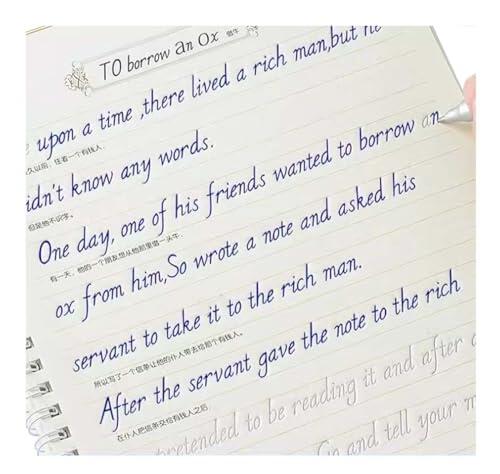 TO borrow an Ox 借牛
upon a time ,there lived a rich man,but he
久以前，住着一个有钱人，
idn't know any words.
但是他不识字。
One day, one of his friends wanted to borrow an
有一天，他的一个朋友想从他那里借一头牛，
ox from him,So wrote a note and asked his
servant to take it to the rich man.
所以写了一个信条让他的仆人带去给那个有钱人。
After the servant gave the note to the rich
在仆人把信条交给有钱人之后，
pretended to be reading it and after
Go and tell your m